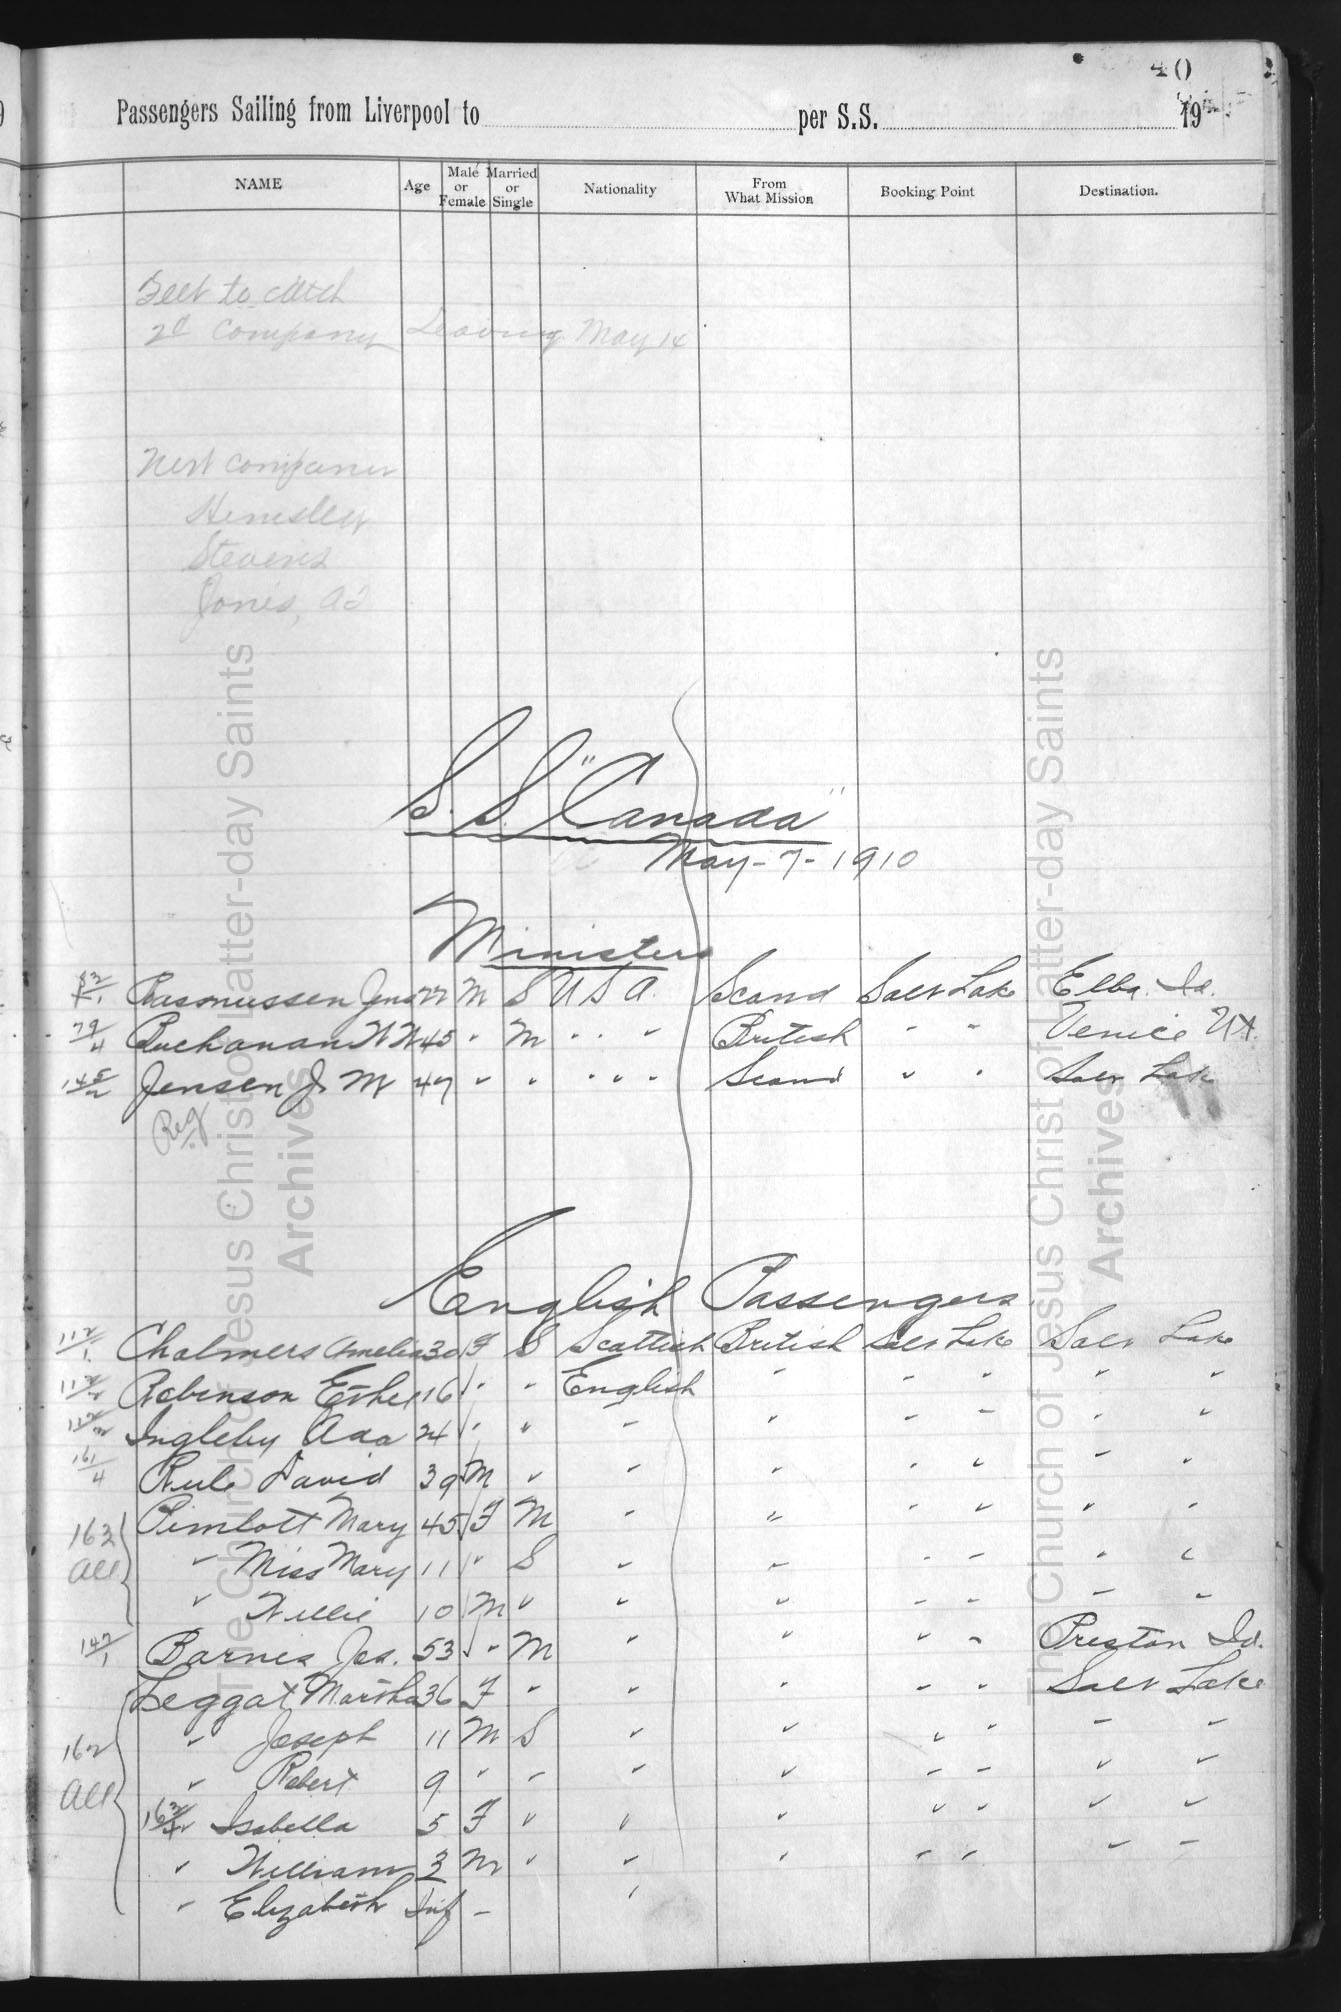 40
Passengers Sailing from Liverpool to per S.S. 19
NAME Age Male or Female Married or Single Nationality From What Mission Booking Point Destination.
to catch
2d Company Leaving May 14
Next
Stevens
Jones,
S.S. "Canada"
May-7-1910
Ministers
Rasmussen Jens 22 M S U S A. Scand Salt Lake Elba. Id.
79/4 Buchanan W W 45 " M " " " British " " Venice Ut.
145/2 Jensen J. M 47 " " " " " Scand " " Salt Lake
Reg
English Passengers
112/1 Chalmers Amelia 30 F S Scottish British Salt Lake Salt Lake
112/2 Robinson Esther 16 " " English " " " " "
112/3 Ingleby Ada 24 " " " " " " " "
161/4 Rule David 39 M " " " " " " "
163 All Pimlott Mary 45 F M " " " " " "
" Miss Mary 11 " S " " " " " "
" Willie 10 M " " " " " " "
147/1 Barnes Jas. 53 " M " " " " Preston Id.
162 All Leggat Martha 36 F " " " " " Salt Lake
" Joseph 11 M S " " " " " "
" Robert 9 " " " " " " " "
" Isabella 5 F " " " " " " "
" William 3 M " " " " " " "
" Elizabeth Inf " "
The Church of Jesus Christ of Latter-day Saints
Archives
The Church of Jesus Christ of Latter-day Saints
Archives